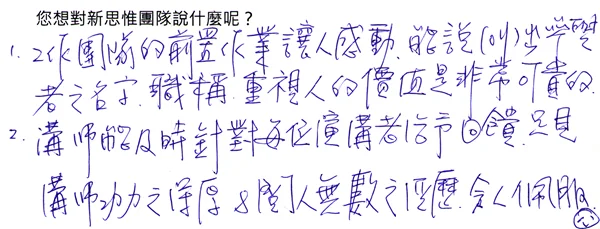 您想對新思惟團隊說什麼呢？
1. 工作團隊的前置作業讓人感動. 能說(叫)出學習
者之名字. 職稱. 重視人的價值是非常可貴的.
2. 講師能及時針對每位演講者給予回饋. 足見
講師功力之深厚 & 閱人無數之經歷. 令人佩服.